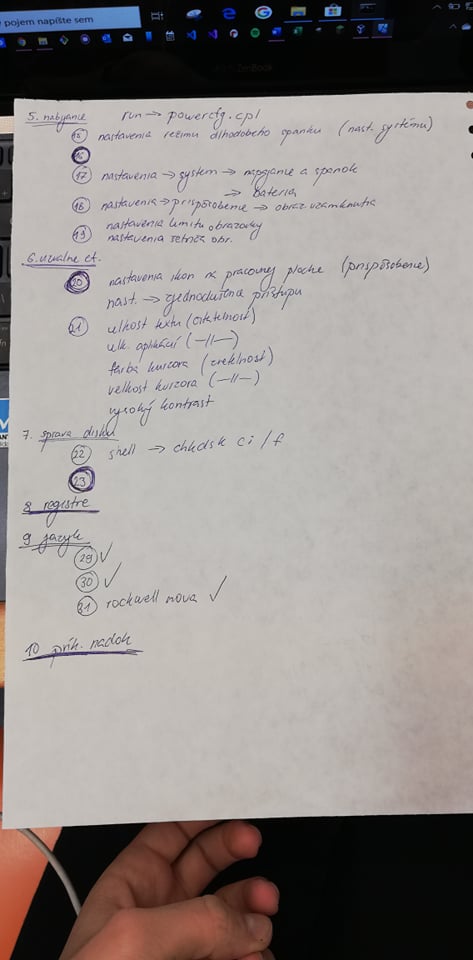 pojem napíšte sem
ASUS ZenBook
5. nabíjanie run → powercfg.cpl
15 nastavenia režimu dlhodobého spánku (nast. systému)
16
17 nastavenia → system → napájanie a spánok
→ batéria
18 nastavenia → prispôsobenie → obraz. uzamknutia
19 nastavenia limitu obrazovky
nastavenia šetriča obr.
20 nastavenia ikon na pracovnej ploche (prispôsobenie)
nast. → zjednodušenia prístupu
21 veľkosť textu (čitateľnosť)
veľk. aplikácií (—||—)
farba kurzora (zreteľnosť)
veľkosť kurzora (—||—)
vysoký kontrast
7. správa disku
22 shell → chkdsk c: /f
23
8 registre
9 jazyk
29 ✓
30 ✓
31 rockwell nova ✓
10 prík. riadok